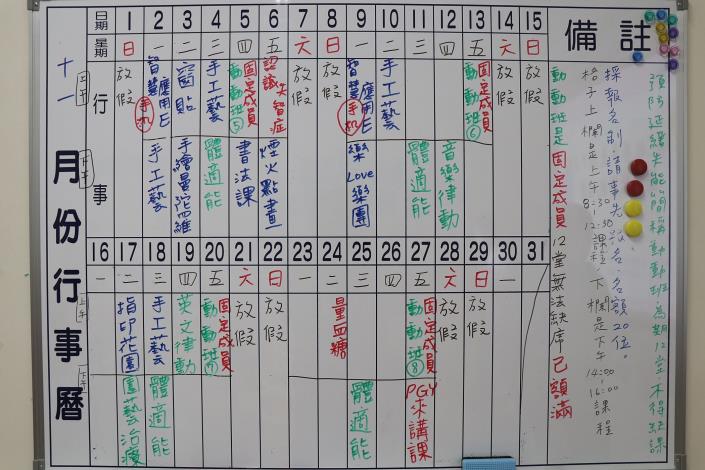 十一月份行事曆
日期 1 2 3 4 5 6 7 8 9 10 11 12 13 14 15
星期 日 一 二 三 四 五 六 日 一 二 三 四 五 六 日
行事
上午
下午
放假
智慧應用E
手机
手工藝
窗貼
手繪曼陀羅
手工藝
體適能
固定成員
動動班⑤
書法課
認識失智症
煙火點畫
放假
放假
智慧應用E
手机
樂Love樂團
手工藝
體適能
音樂律動
固定成員
動動班⑥
放假
放假
16 17 18 19 20 21 22 23 24 25 26 27 28 29 30 31
一 二 三 四 五 六 日 一 二 三 四 五 六 日 一
上午
下午
指印花園
園藝治療
手工藝
體適能
英文律動
固定成員
動動班⑦
放假
放假
量血糖
體適能
固定成員
動動班⑧
PGY來講課
放假
放假
備註
預防延緩失能簡稱動動班,為期12堂不得缺課
採報名制,請事先報名,名額20位。
格子上欄是上午8:30-12:30課程,下欄是下午14:00-16:00課程
動動班是固定成員12堂無法缺席 已額滿